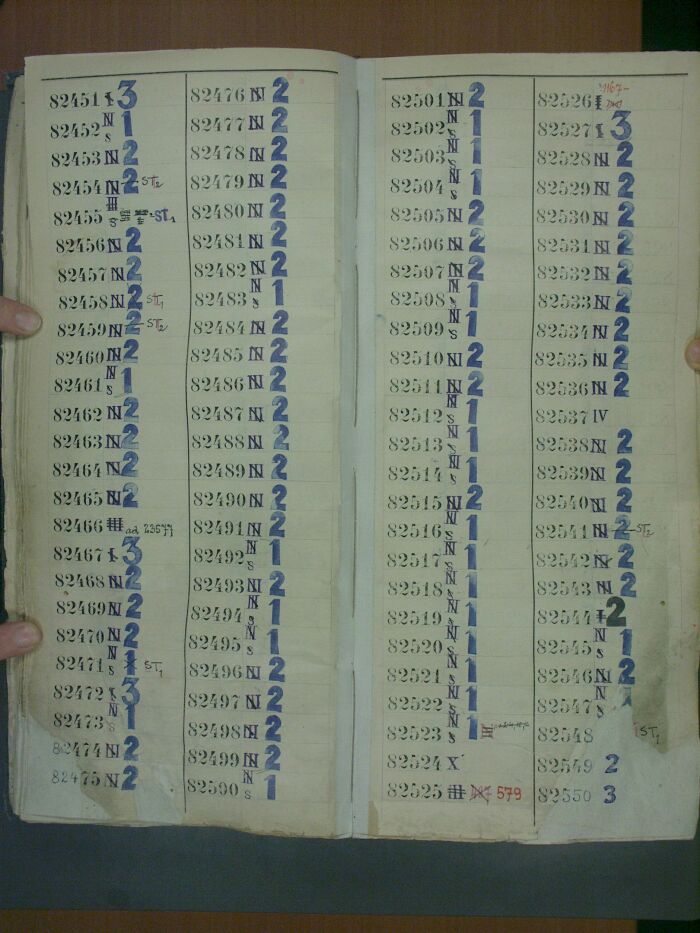 82451 I 3
82452 N s 1
82453 NI 2
82454 NI 2 ST2
82455 III s ST1
82456 NI 2
82457 NI 2
82458 NI 2 ST1
82459 NI 2 ST2
82460 NI 2
82461 N s 1
82462 NI 2
82463 NI 2
82464 NI 2
82465 NI 2
82466 III ad
82467 I 3
82468 NI 2
82469 NI 2
82470 NI 2
82471 N s 1 ST1
82472 I 3
82473 N s 1
82474 NI 2
82475 NI 2
82476 NI 2
82477 NI 2
82478 NI 2
82479 NI 2
82480 NI 2
82481 NI 2
82482 NI 2
82483 N s 1
82484 NI 2
82485 NI 2
82486 NI 2
82487 NI 2
82488 NI 2
82489 NI 2
82490 NI 2
82491 NI 2
82492 N s 1
82493 NI 2
82494 N s 1
82495 N s 1
82496 NI 2
82497 NI 2
82498 NI 2
82499 NI 2
82500 N s 1
82501 NI 2
82502 N s 1
82503 N s 1
82504 N s 1
82505 NI 2
82506 NI 2
82507 NI 2
82508 N s 1
82509 N s 1
82510 NI 2
82511 NI 2
82512 N s 1
82513 N s 1
82514 N s 1
82515 NI 2
82516 N s 1
82517 N s 1
82518 N s 1
82519 N s 1
82520 N s 1
82521 N s 1
82522 N s 1
82523 N s 1
82524 X
82525 III 579
1167-
82526 I
82527 I 3
82528 NI 2
82529 NI 2
82530 NI 2
82531 NI 2
82532 NI 2
82533 NI 2
82534 NI 2
82535 NI 2
82536 NI 2
82537 IV
82538 NI 2
82539 NI 2
82540 NI 2
82541 NI 2 ST2
82542 N 2
82543 NI 2
82544 I 2
82545 N s 1
82546 NI 2
82547 N s 1
82548 ST1
82549 2
82550 3